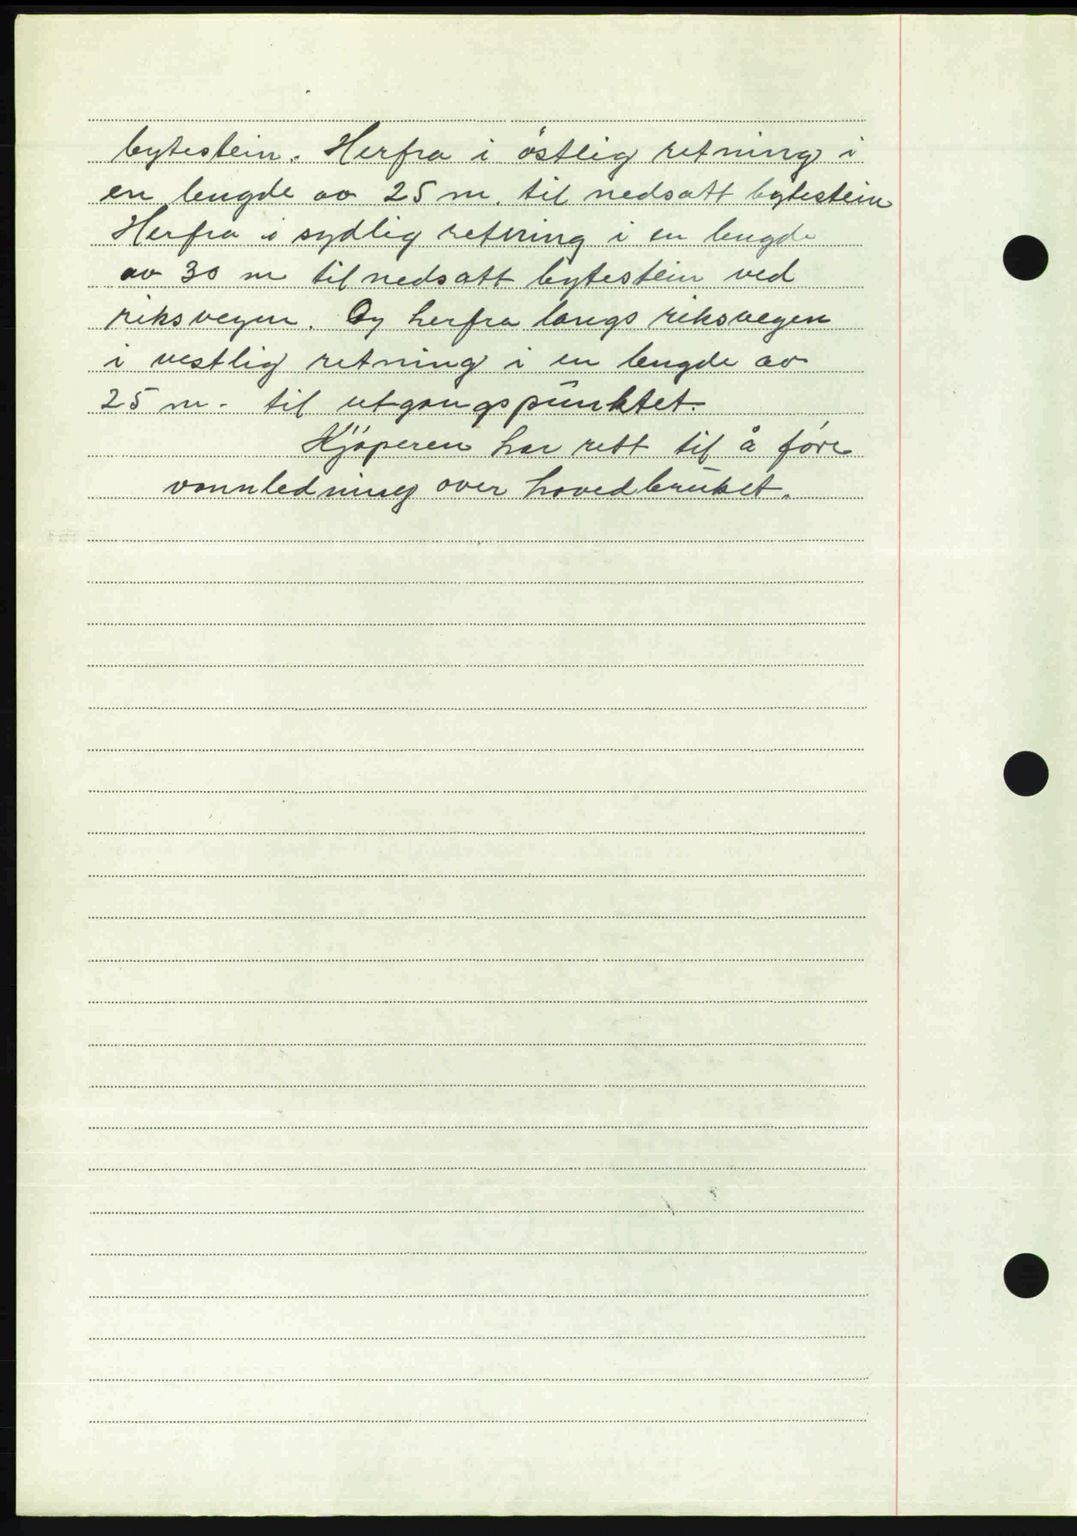 bytestein. Herfra i östlig retning i
en lengde av 25 m. til nedsatt bytestein
Herfra i sydlig retning i en lengde
av 30 m til nedsatt bytestein ved
riksvegen. Og herfra langs riksvegen
i vestlig retning i en lengde av
25 m. til utgangspunktet.
Kjöperen har rett til å före
vannledning over hovedbruket.